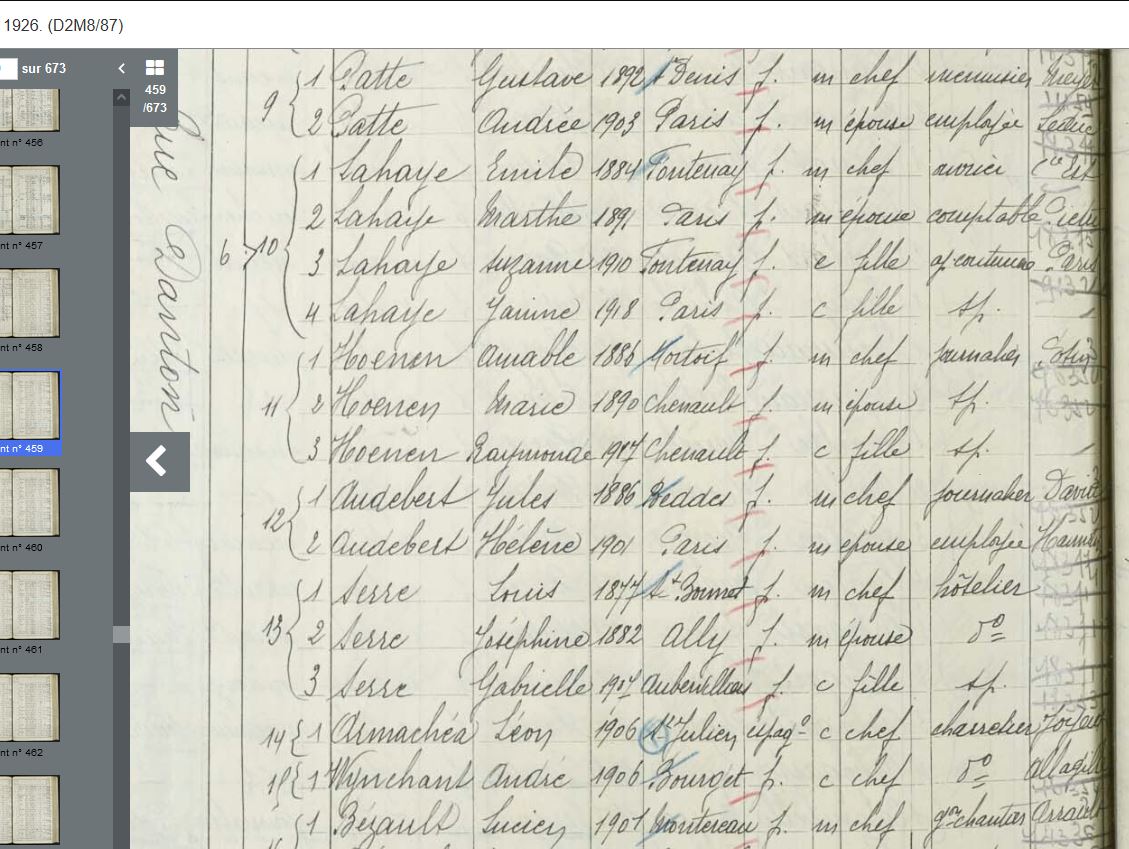 1926. (D2M8/87)
sur 673
459
/673
nt n° 456
nt n° 457
nt n° 458
nt n° 459
nt n° 460
nt n° 461
nt n° 462
Rue Danton
9 1 Patte Gustave 1892 St Denis f. m chef menuisier
2 Patte Andrée 1903 Paris f. m épouse employée Leduc
6 10 1 Lahaye Emile 1884 Fontenay f. m chef Cie Est
2 Lahaye Marthe 1891 Paris f. m épouse comptable
3 Lahaye Suzanne 1910 Fontenay f. c fille Paris
4 Lahaye Janine 1918 Paris f. c fille sp.
11 1 Hoenen Amable 1886 f. m chef journalier
2 Hoenen Marie 1890 Chenault f. m épouse sp.
3 Hoenen Raymonde 1917 Chenault f. c fille sp.
12 1 Audebert Jules 1886 f. m chef journalier David
2 Audebert Hélène 1901 Paris f. m épouse employée
13 1 Serre Louis 1877 St Bonnet f. m chef hôtelier
2 Serre Joséphine 1882 Ally f. m épouse do
3 Serre Gabrielle 1917 Aubervilliers f. c fille sp.
14 1 Armachéa Léon 1906 St Julien espag. c chef charretier
15 1 Wynchant André 1906 Bourget f. c chef do
1 Bézault Lucien 1901 Montereau f. m chef gon chantier